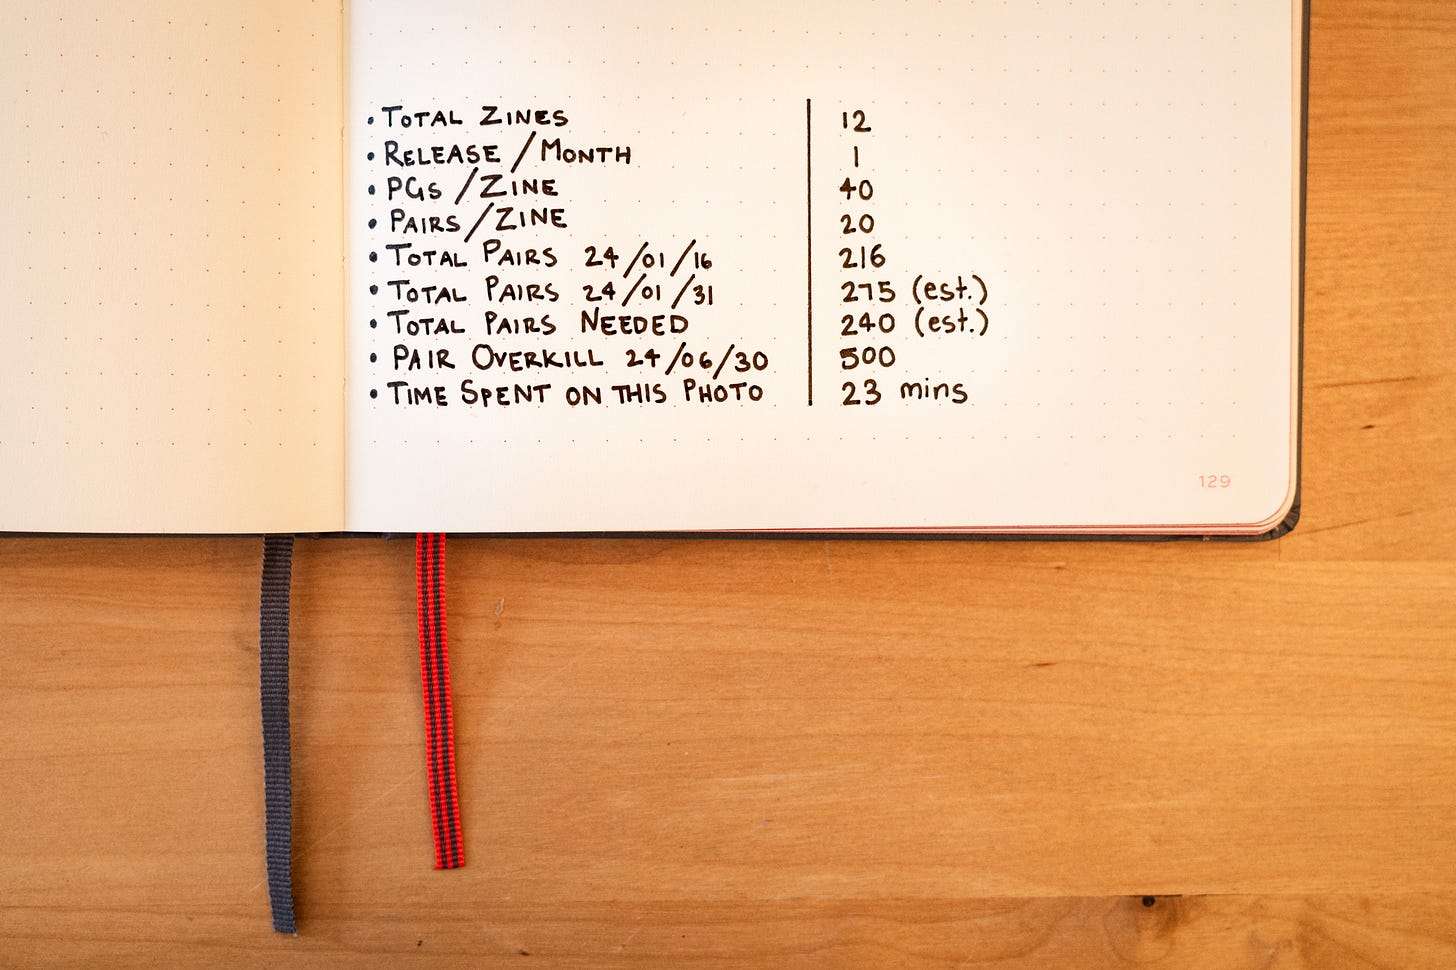 • TOTAL ZINES 12
• RELEASE / MONTH 1
• PGs / ZINE 40
• PAIRS / ZINE 20
• TOTAL PAIRS 24/01/16 216
• TOTAL PAIRS 24/01/31 275 (est.)
• TOTAL PAIRS NEEDED 240 (est.)
• PAIR OVERKILL 24/06/30 500
• TIME SPENT ON THIS PHOTO 23 mins
129